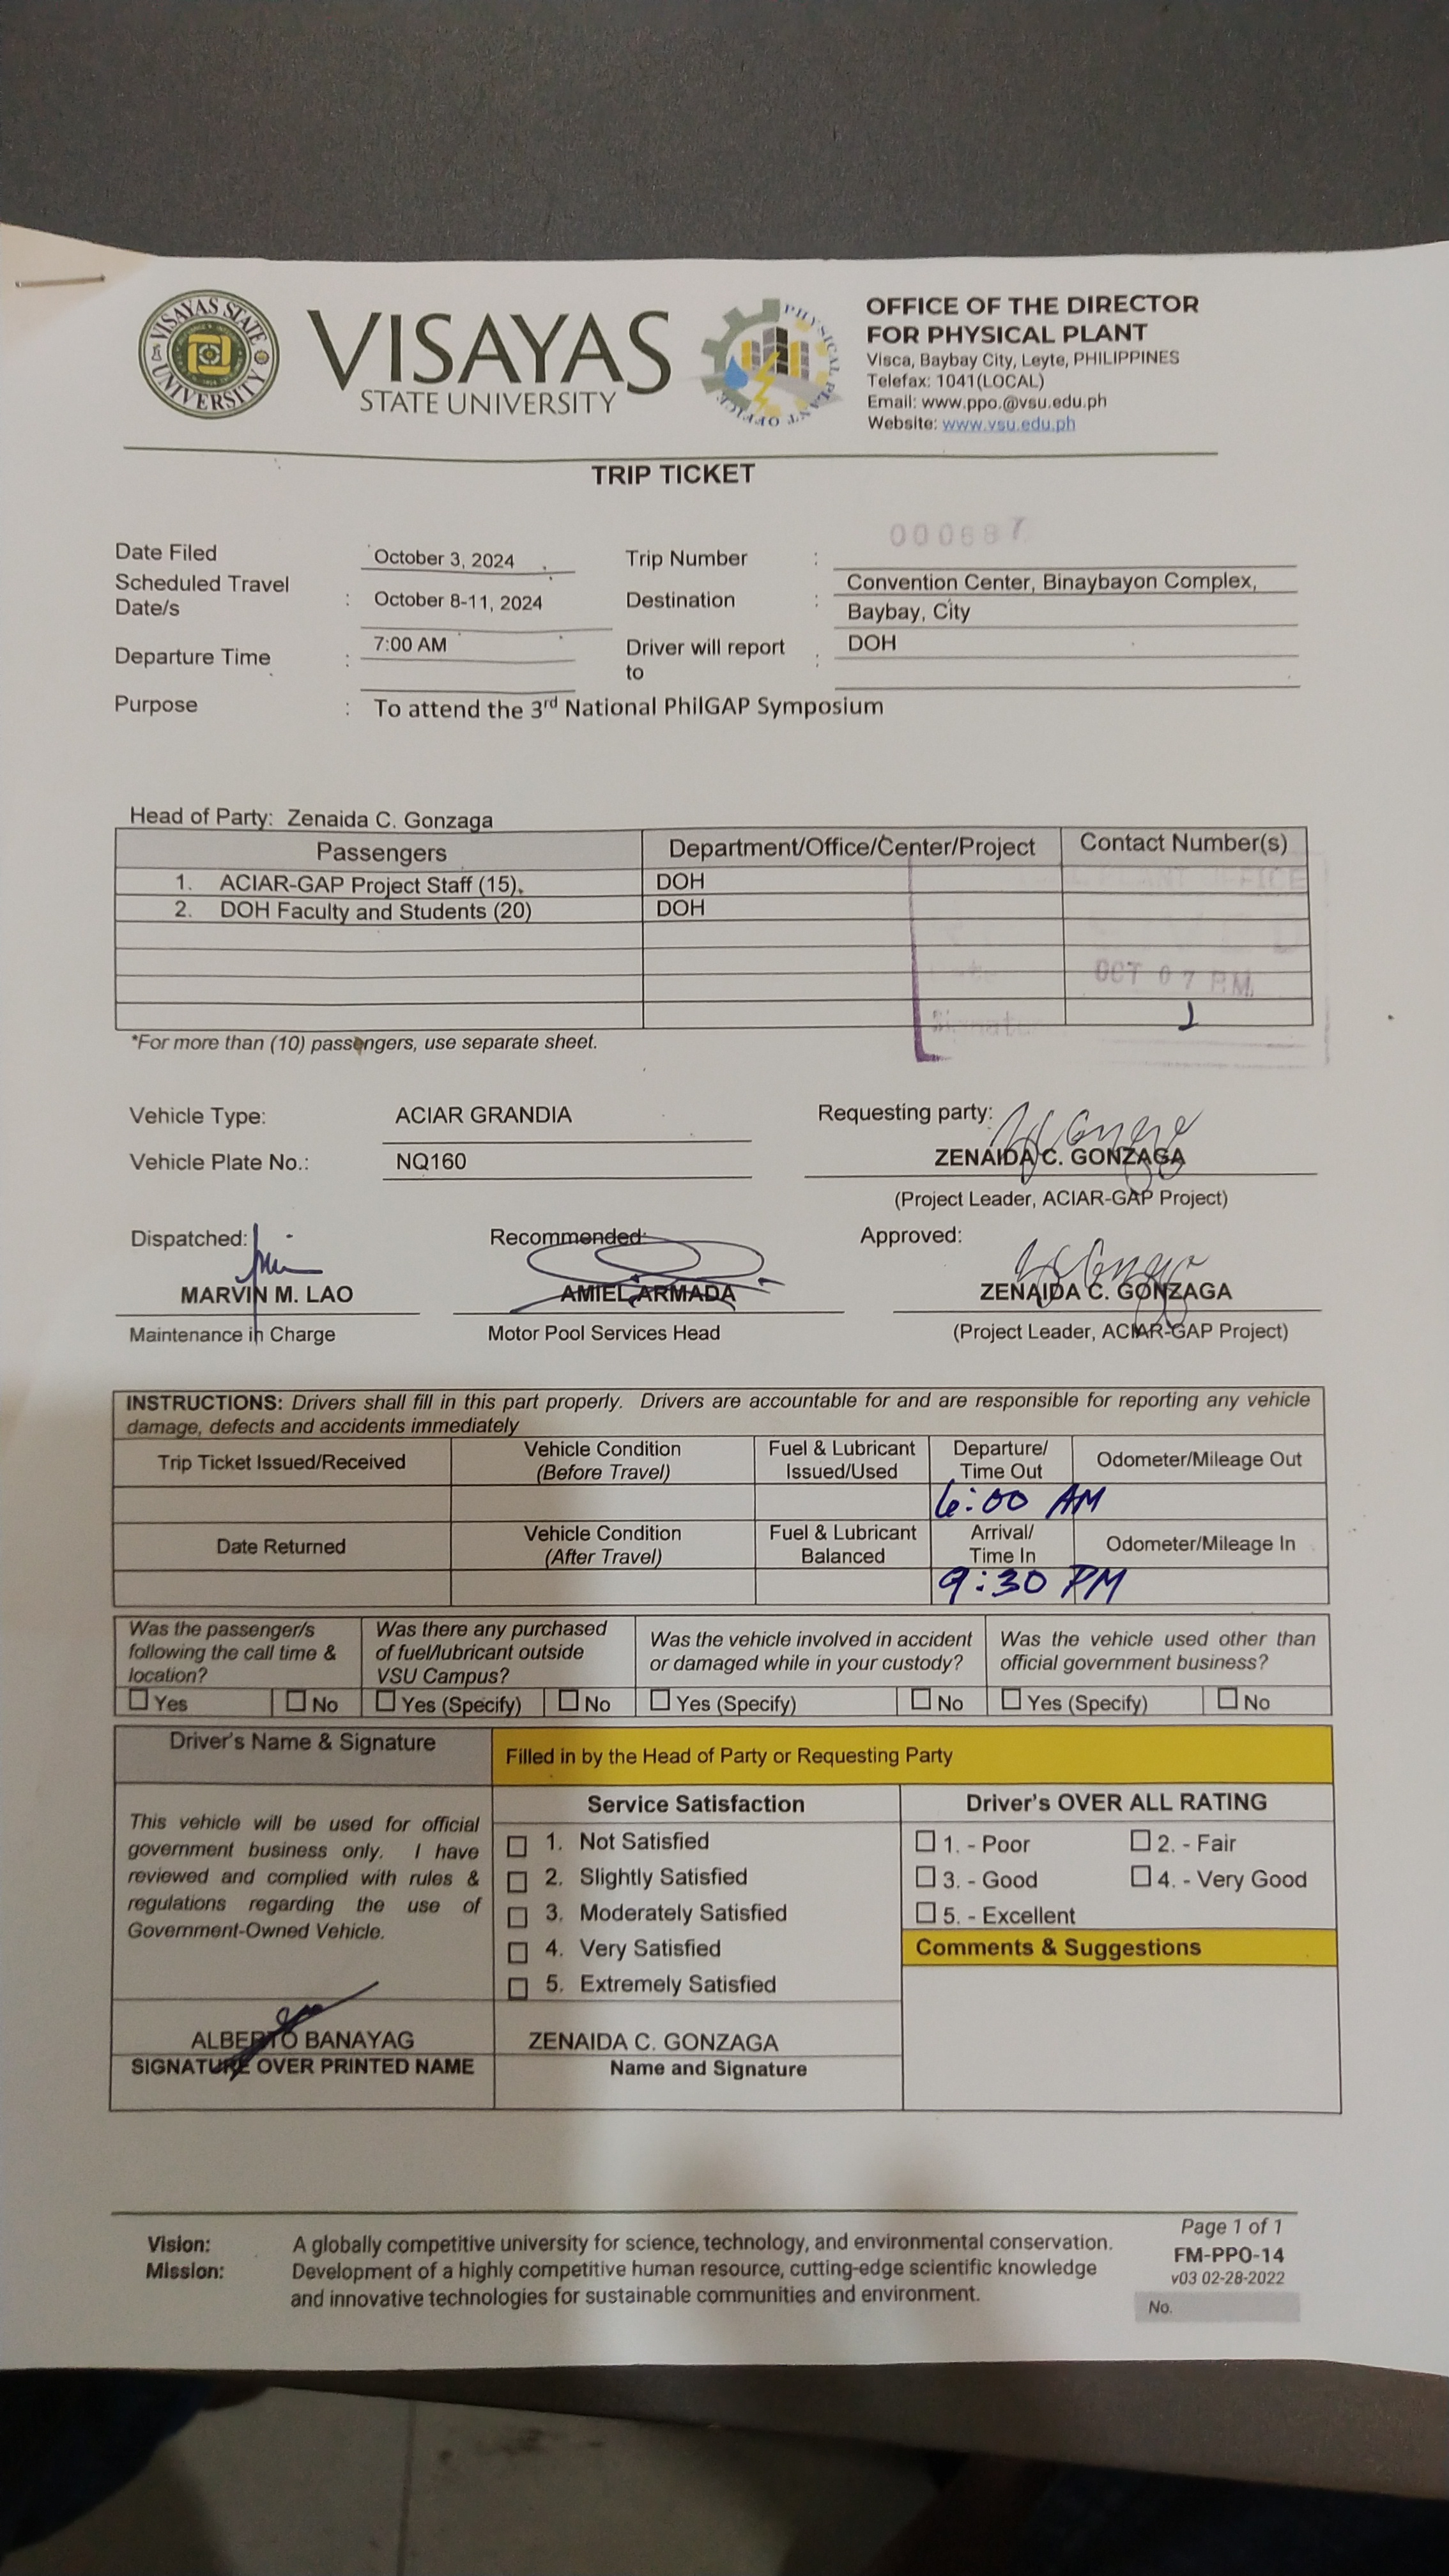 VISAYAS STATE UNIVERSITY
VISAYAS
STATE UNIVERSITY
PHYSICAL PLANT OFFICE
OFFICE OF THE DIRECTOR
FOR PHYSICAL PLANT
Visca, Baybay City, Leyte, PHILIPPINES
Telefax: 1041(LOCAL)
Email: www.ppo.@vsu.edu.ph
Website: www.vsu.edu.ph
TRIP TICKET
000687
Date Filed October 3, 2024 Trip Number :
Scheduled Travel Date/s : October 8-11, 2024 Destination : Convention Center, Binaybayon Complex,
Baybay, City
Departure Time : 7:00 AM Driver will report to : DOH
Purpose : To attend the 3rd National PhilGAP Symposium
Head of Party: Zenaida C. Gonzaga
Passengers Department/Office/Center/Project Contact Number(s)
1. ACIAR-GAP Project Staff (15). DOH
2. DOH Faculty and Students (20) DOH
OCT 07 P.M.
*For more than (10) passengers, use separate sheet.
Vehicle Type: ACIAR GRANDIA Requesting party:
Vehicle Plate No.: NQ160 ZENAIDA C. GONZAGA
(Project Leader, ACIAR-GAP Project)
Dispatched: Recommended: Approved:
MARVIN M. LAO AMIEL ARMADA ZENAIDA C. GONZAGA
Maintenance in Charge Motor Pool Services Head (Project Leader, ACIAR-GAP Project)
INSTRUCTIONS: Drivers shall fill in this part properly. Drivers are accountable for and are responsible for reporting any vehicle
damage, defects and accidents immediately
Trip Ticket Issued/Received Vehicle Condition (Before Travel) Fuel & Lubricant Issued/Used Departure/ Time Out Odometer/Mileage Out
6:00 AM
Date Returned Vehicle Condition (After Travel) Fuel & Lubricant Balanced Arrival/ Time In Odometer/Mileage In
9:30 PM
Was the passenger/s following the call time & location? Was there any purchased of fuel/lubricant outside VSU Campus? Was the vehicle involved in accident or damaged while in your custody? Was the vehicle used other than official government business?
Yes No Yes (Specify) No Yes (Specify) No Yes (Specify) No
Driver's Name & Signature Filled in by the Head of Party or Requesting Party
This vehicle will be used for official
government business only. I have
reviewed and complied with rules &
regulations regarding the use of
Government-Owned Vehicle.
Service Satisfaction
1. Not Satisfied
2. Slightly Satisfied
3. Moderately Satisfied
4. Very Satisfied
5. Extremely Satisfied
Driver's OVER ALL RATING
1. - Poor 2. - Fair
3. - Good 4. - Very Good
5. - Excellent
Comments & Suggestions
ALBERTO BANAYAG ZENAIDA C. GONZAGA
SIGNATURE OVER PRINTED NAME Name and Signature
Vision: A globally competitive university for science, technology, and environmental conservation.
Mission: Development of a highly competitive human resource, cutting-edge scientific knowledge
and innovative technologies for sustainable communities and environment.
Page 1 of 1
FM-PPO-14
v03 02-28-2022
No.